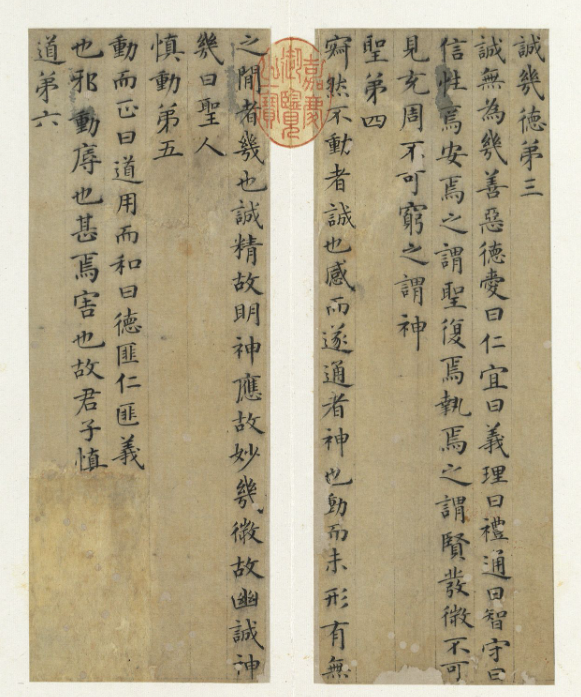 誠幾德第三
誠無為幾善惡德愛曰仁宜曰義理曰禮通曰智守曰
信性焉安焉之謂聖復焉執焉之謂賢發微不可
見充周不可窮之謂神
聖第四
寂然不動者誠也感而遂通者神也動而未形有無
之間者幾也誠精故明神應故妙幾微故幽誠神
幾曰聖人
慎動第五
動而正曰道用而和曰德匪仁匪義
也邪動辱也甚焉害也故君子慎
道第六
嘉慶
御覽
之寶